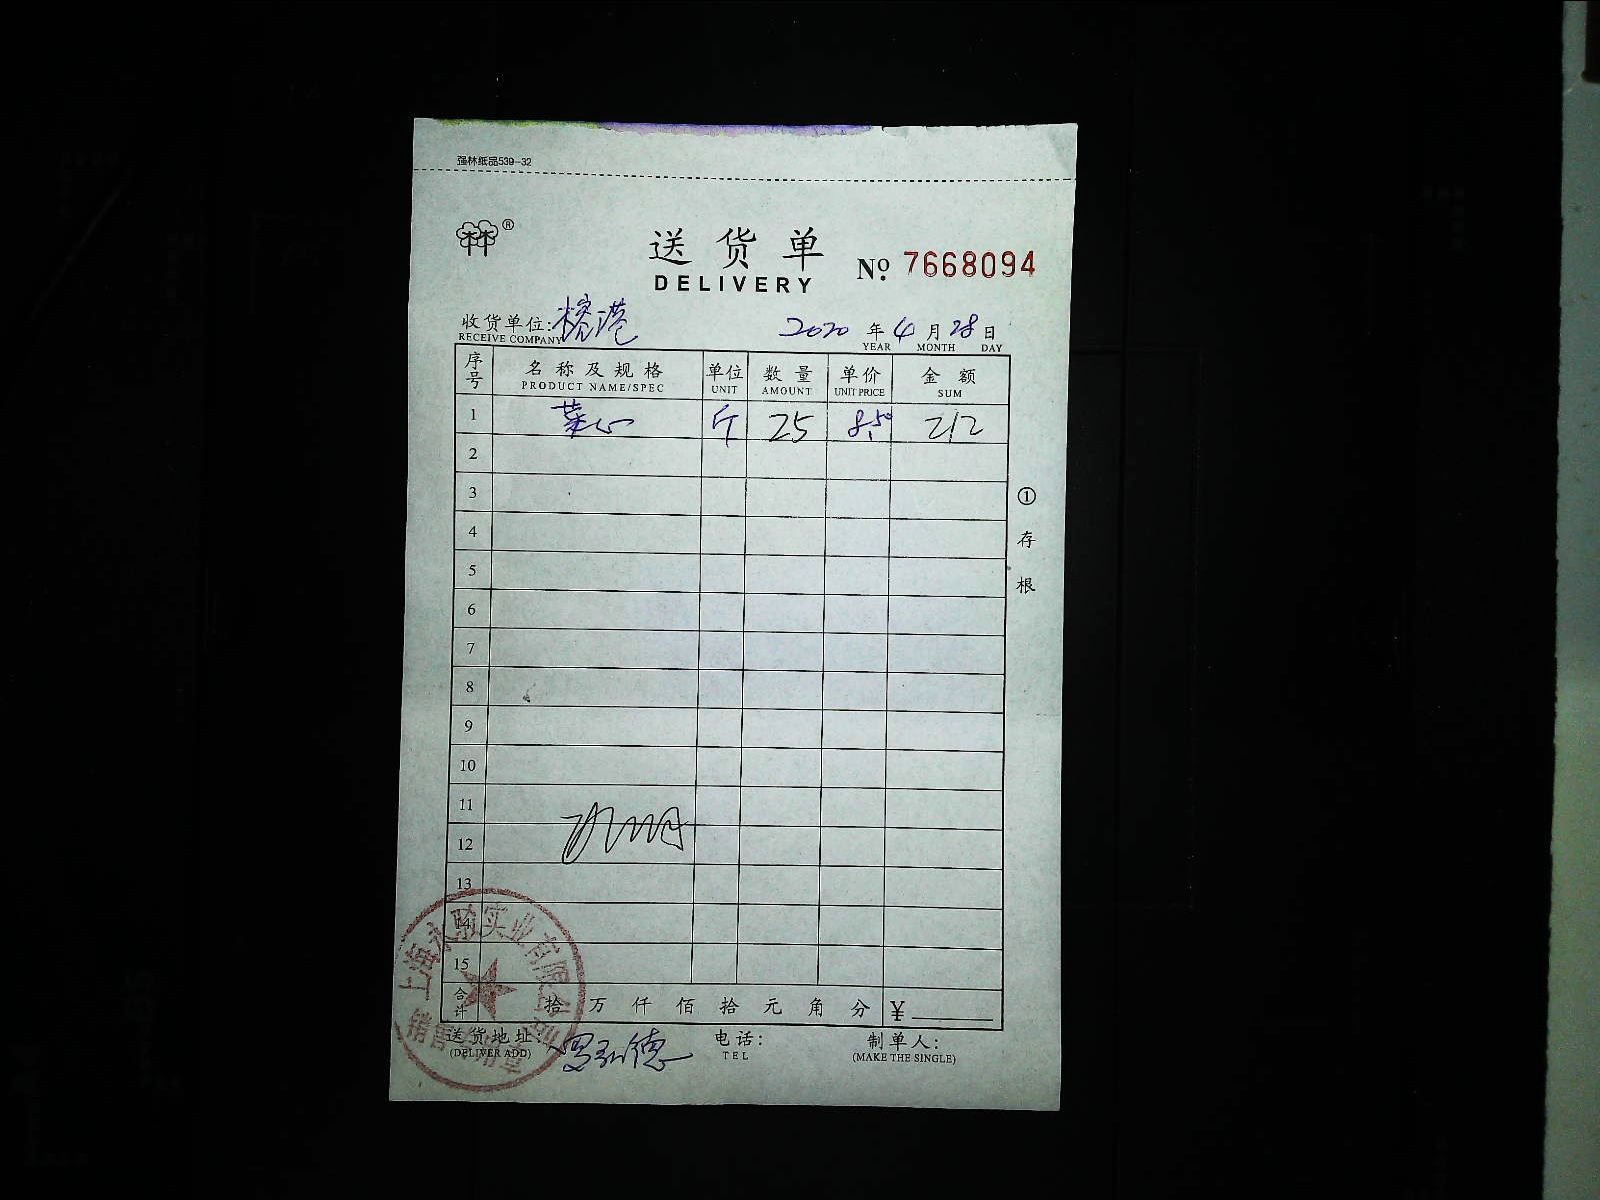 强林纸品539-32
®
送货单
DELIVERY
№ 7668094
收货单位: 榕港
RECEIVE COMPANY
2020 年 4 月 28 日
YEAR MONTH DAY
序号 名称及规格 单位 数量 单价 金额
PRODUCT NAME/SPEC UNIT AMOUNT UNIT PRICE SUM
1 菜心 斤 25 8.50 212
2
3
4
5
6
7
8
9
10
11
12
13
14
15
合计 拾 万 仟 佰 拾 元 角 分 ¥
送货地址: 电话: 制单人:
(DELIVER ADD) TEL (MAKE THE SINGLE)
①存根
上海永 实业有限公司
销售专用章